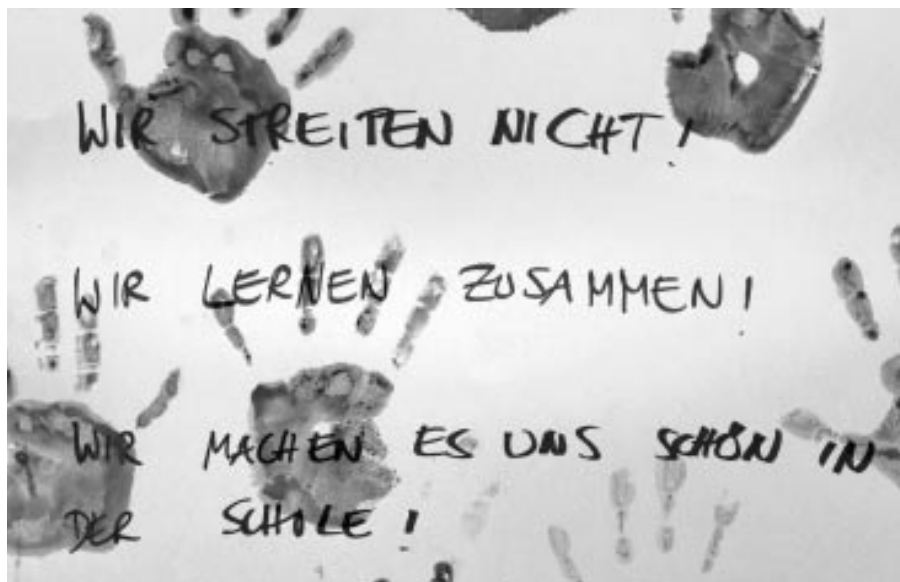 WIR STREITEN NICHT!
WIR LERNEN ZUSAMMEN!
WIR MACHEN ES UNS SCHÖN IN
DER SCHULE!